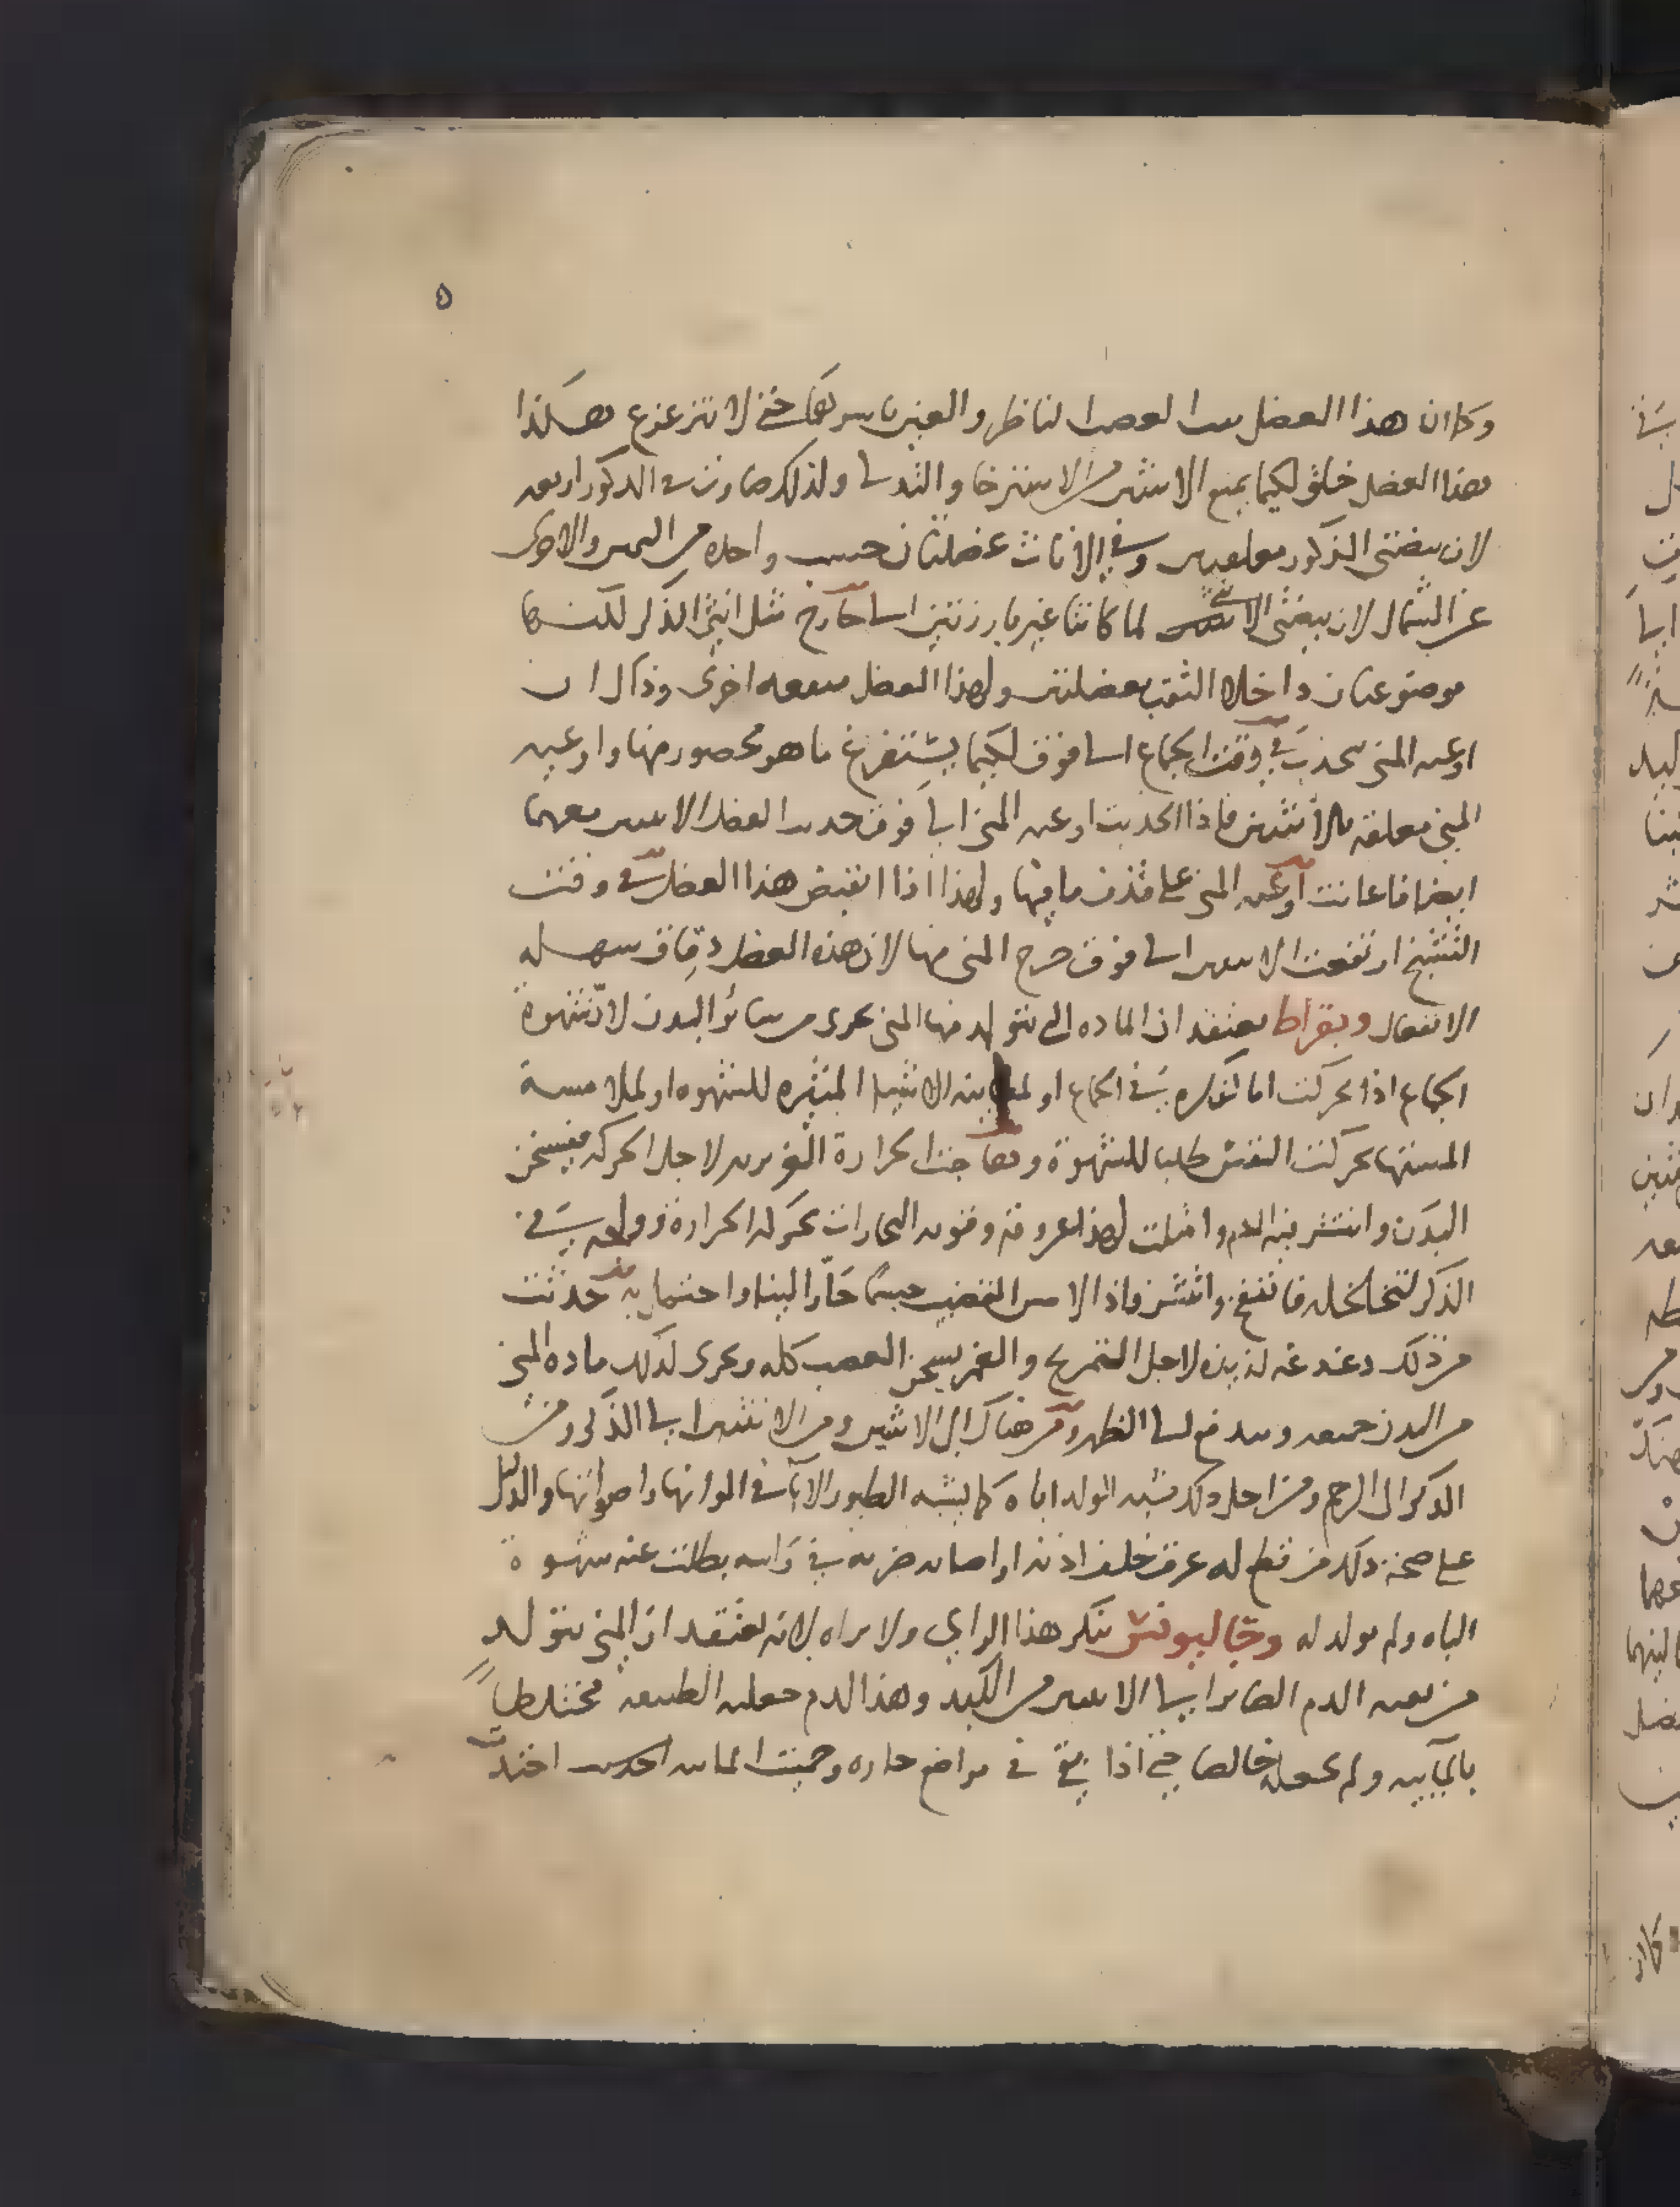 ٥
وكما ان هذا العضل العصب الناظر والعين حتى لا تتزعزع هكذا
هذا العضل خلق لكيما يمنع الانثيين من الاسترخا والتدلي ولذلك صارت في الذكور اربعه
لان بيضتي الذكور معلقتين وفي الاناث عضلتان حسب واحده من اليمين والاخرى
عن الشمال لان بيضتي الانثى لما كانتا غير بارزتين الى خارج مثل انثيي الذكر لكنها
موضوعتان داخلا اكتفت بعضلتين ولهذا العضل منفعه اخرى وذاك ان
اوعيه المني تنجذب في وقت الجماع الى فوق لكيما يستفرغ ما هو محصور فيها واوعيه
المني معلقه بالانثيين فاذا انجذبت اوعيه المني الى فوق جذب العضل الانثيين معهما
ايضا فاعانت اوعيه المني على قذف ما فيها ولهذا اذا انقبض هذا العضل في وقت
التشنج ارتفعت الانثيين الى فوق خرج المني منها لان هذه العضل دقاق سهله
الانفعال وبقراط يعتقد ان الماده التي يتولد منها المني تجري من سائر البدن لان شهوة
الجماع اذا تحركت اما لفكره في الجماع او لمعاينه الاشيا المثيره للشهوه او لملامسة
المشتها تحركت النفس طلبا للشهوة وهاجت الحرارة الغريزيه لاجل الحركه فيسخن
البدن وانتشر فيه الدم وامتلت لهذا عروقه وقويه البخارات بحركه الحرارة وولجه في
الذكر لتخلخله فانتفخ وانتشر فاذا لامس القضيب جسما حارا لينا واحتما به حدثت
من ذلك دغدغه لذيذه لاجل التمريخ والغمز يسخن العصب كله وتجري لذلك ماده المني
من البدن جميعه ويندفع الى الظهر ومن هناك الى الانثيين ومن الانثيين الى الذكر ومن
الذكر الى الرحم ومن اجل ذلك يشبه المولد اباه كما يشبه الطيور الاباء في الوانها واصواتها والدليل
على صحة ذلك من قطع له عرق خلف اذنه او اصابه ضربه في راسه بطلت عنه شهوة
الباه ولم يولد له وجالينوس ينكر هذا الراي ولا يراه لانه يعتقد ان المني يتولد
من بقيه الدم الصاير الى الانثيين من الكبد وهذا الدم جعلته الطبيعه مختلطا
بالمآييه ولم تجعله خالصا حتى اذا بقي في مواضع حاره وحميت المائيه احدث